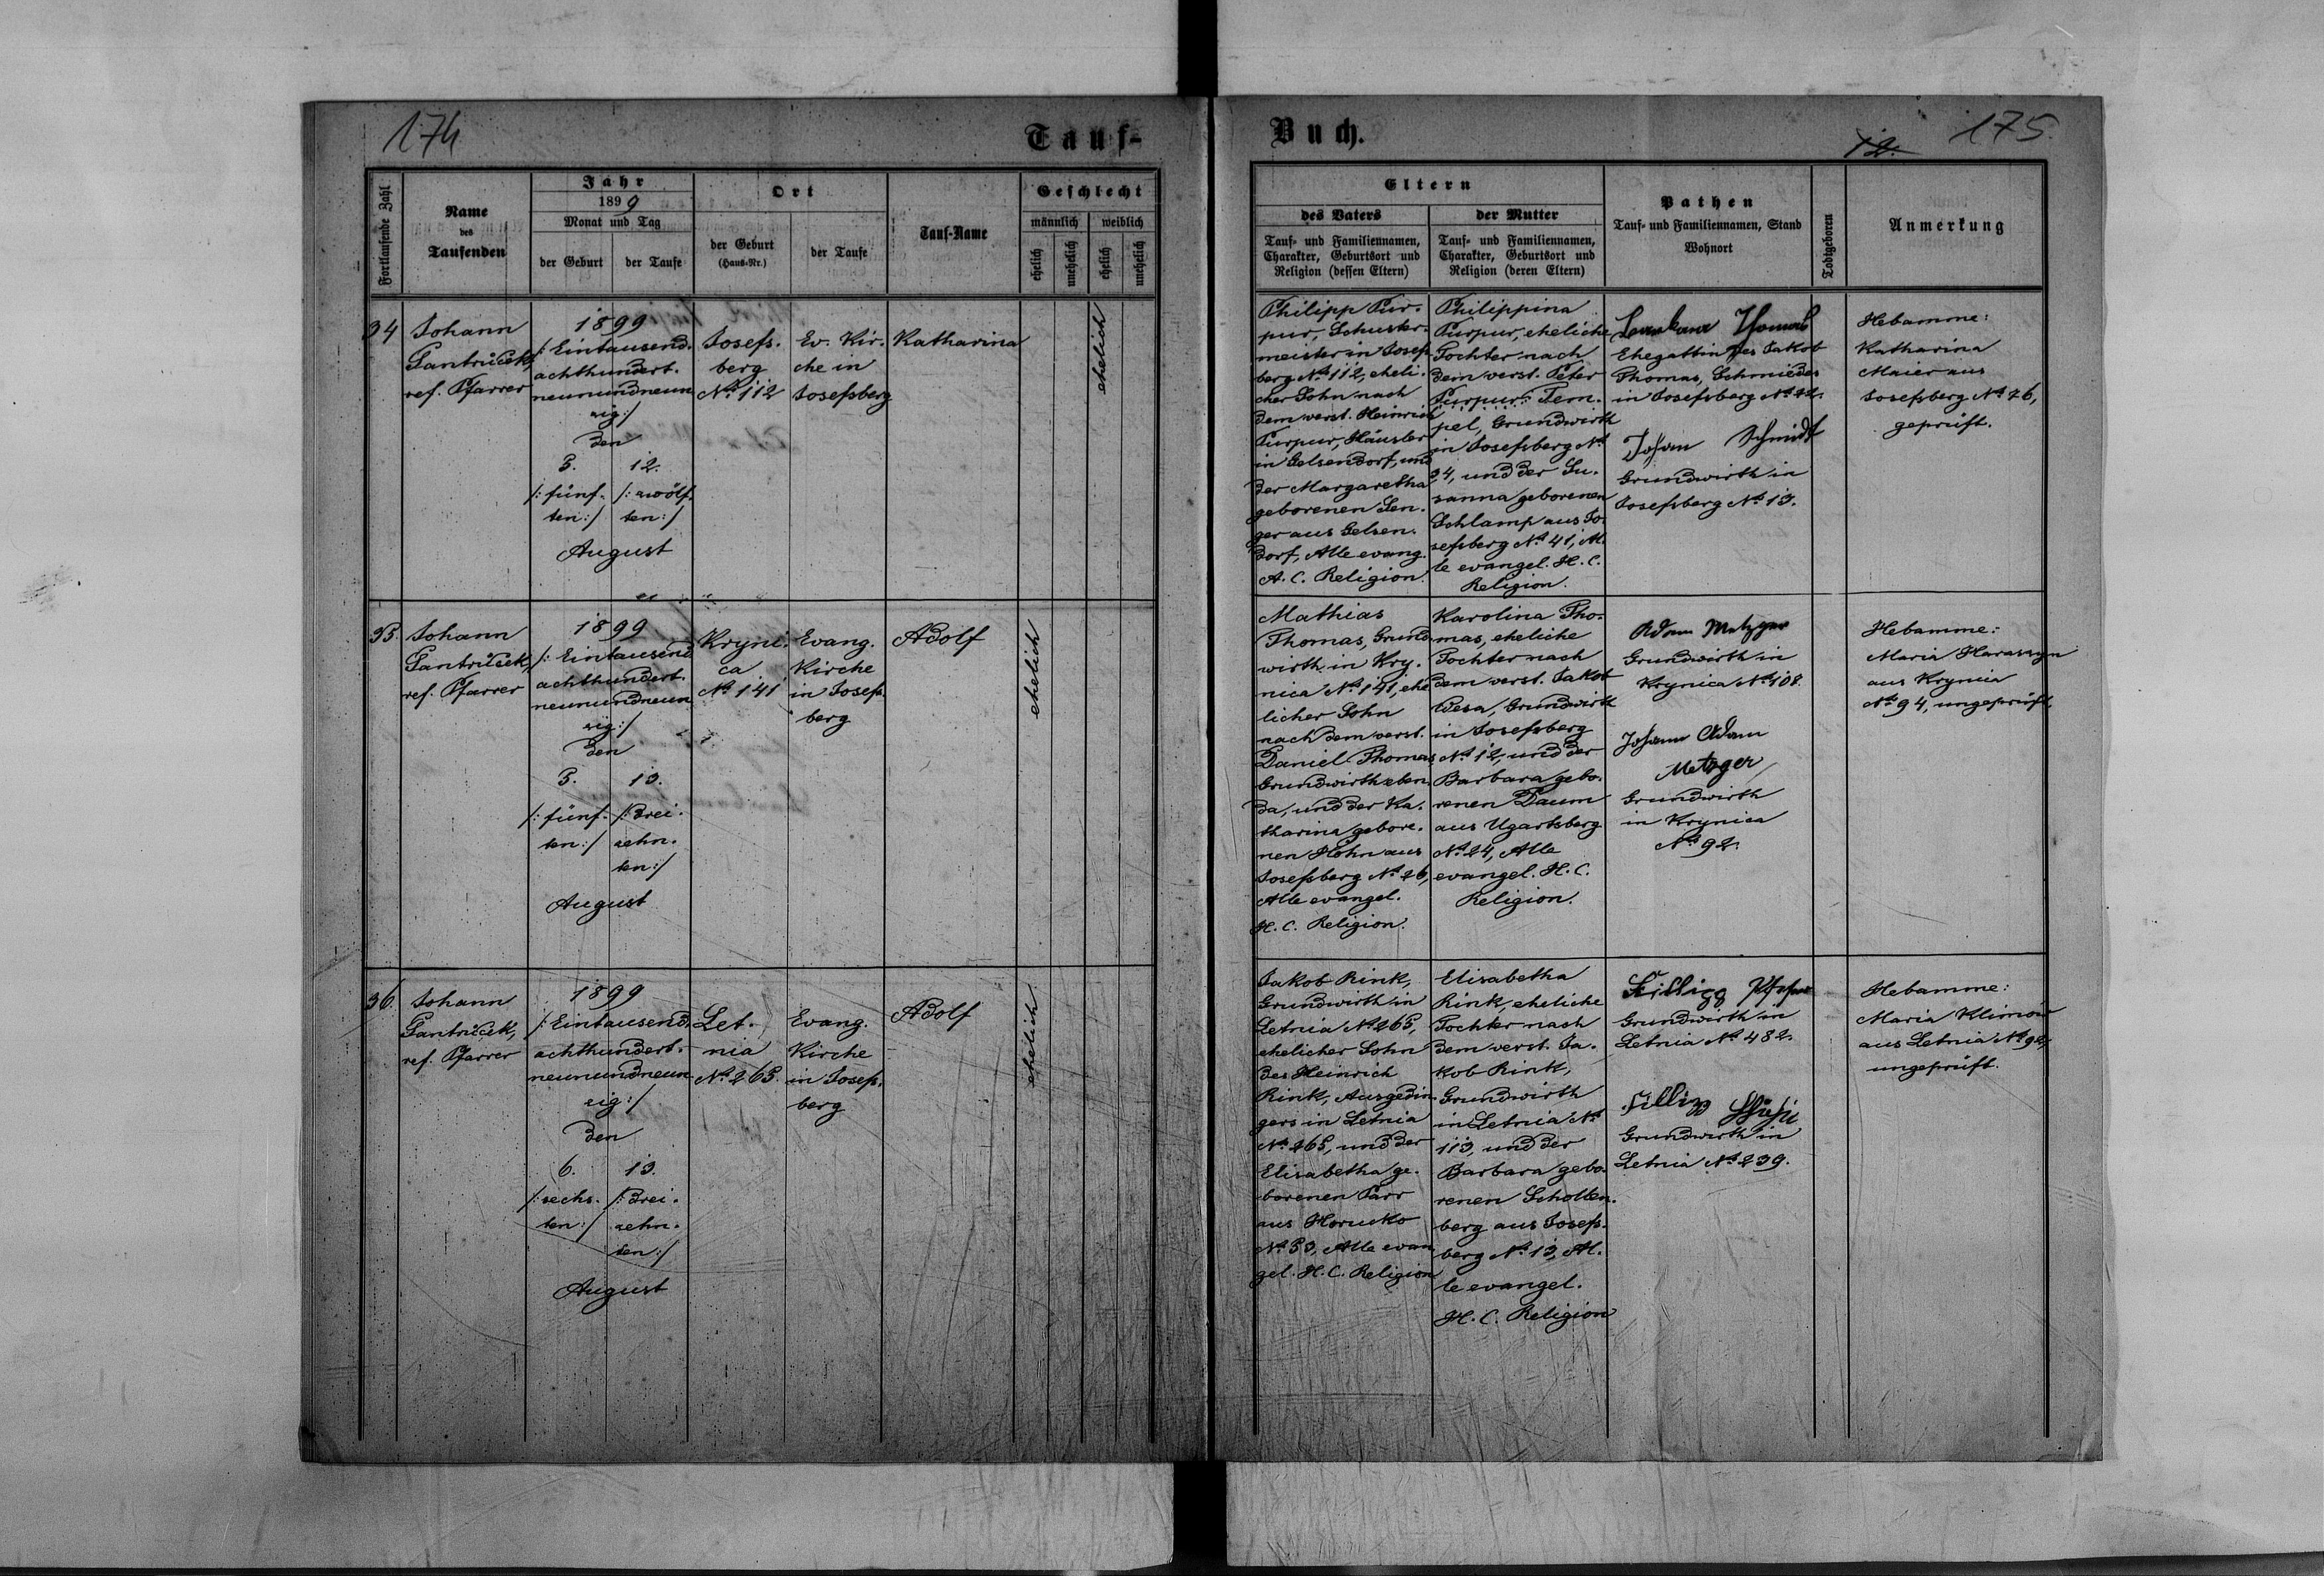 174
Tauf-
Fortlaufende Zahl
Name
des
Taufenden
Jahr
1899
Monat und Tag
der Geburt
der Taufe
Ort
der Geburt
(Haus-Nr.)
der Taufe
Tauf-Name
Geschlecht
männlich
weiblich
ehelich
unehelich
ehelich
unehelich
34
Johann
ref. Pfarrer
1899
/: Eintausend-
achthundert-
neunundneun
zig :/
den
5.
12.
/: fünf-
ten :/
/: zwölf-
ten :/
August
Josefs-
berg
No 112
Ev. Kir-
che in
Josefsberg
Katharina
ehelich
35.
Johann
ref. Pfarrer
1899
/: Eintausend
achthundert-
neunundneun
zig :/
den
5.
13.
/: fünf-
ten :/
/: drei-
zehn-
ten :/
August
Kryni-
ca
No 141
Evang.
Kirche
in Josefs-
berg
Adolf
ehelich
36.
Johann
ref. Pfarrer
1899
/: Eintausend
achthundert-
neunundneun-
zig :/
den
6.
13.
/: sechs-
ten :/
/: drei-
zehn-
ten :/
August
Let-
nia
No 265.
Evang.
Kirche
in Josefs-
berg
Adolf
ehelich
Buch.
12.
175.
Eltern
des Vaters
Tauf- und Familiennamen,
Charakter, Geburtsort und
Religion (dessen Eltern)
der Mutter
Tauf- und Familiennamen,
Charakter, Geburtsort und
Religion (deren Eltern)
Pathen
Tauf- und Familiennamen, Stand
Wohnort
Todtgeboren
Anmerkung
Philipp Pur-
pur, Schuster-
meister in Josefs
berg No 112, eheli-
cher Sohn nach
dem verst. Heinrich
Purpur, Häusler
in Gelsendorf, und
der Margaretha
geborenen Sen-
ger aus Gelsen-
dorf, Alle evang.
A. C. Religion.
Philippina
Purpur, eheliche
Tochter nach
dem verst. Peter
Purpur Tem-
pel, Grundwirth
in Josefsberg No
24, und der Su-
sanna geborenen
Schlamp aus Jo-
sefsberg No 41, Al-
le evangel. H. C.
Religion.
Thomas
Ehegattin des Jakob
Thomas, Schmiedes
in Josefsberg No 22.
Johann Schmidt
Grundwirth in
Josefsberg No 13.
Hebamme:
Katharina
Maier aus
Josefsberg No 76,
geprüft.
Mathias
Thomas, Grund-
wirth in Kry-
nica No 141, ehe
licher Sohn
nach dem verst.
Daniel Thomas
Grundwirth eben
da, und der Ka-
tharina gebore-
nen Höhn aus
Josefsberg No 26,
Alle evangel.
H. C. Religion.
Karolina Tho-
mas, eheliche
Tochter nach
dem verst. Jakob
Grundwirth
in Josefsberg
No 12, und der
Barbara gebo-
renen Daum
aus Ugartsberg
No 24, Alle
evangel. H. C.
Religion.
Adam Metzger
Grundwirth in
Krynica No 108.
Johann Adam
Metzger
Grundwirth
in Krynica
No 92.
Hebamme:
Maria
aus Krynica
No 94, ungeprüft.
Jakob Rink,
Grundwirth in
Letnia No 265,
ehelicher Sohn
des Heinrich
Rink, Ausgedin-
gers in Letnia
No 265, und der
Elisabetha ge-
borenen Parr
aus Horucko
No 53, Alle evan
gel. H. C. Religion
Elisabetha
Rink, eheliche
Tochter nach
dem verst. Ja-
kob Rink,
Grundwirth
in Letnia No
113, und der
Barbara gebo-
renen Schollen-
berg aus Josefs-
berg No 13, Al-
le evangel.
H. C. Religion
Grundwirth in
Letnia No 482.
Grundwirth in
Letnia No 239.
Hebamme:
Maria Klimów
aus Letnia No 92,
ungeprüft.